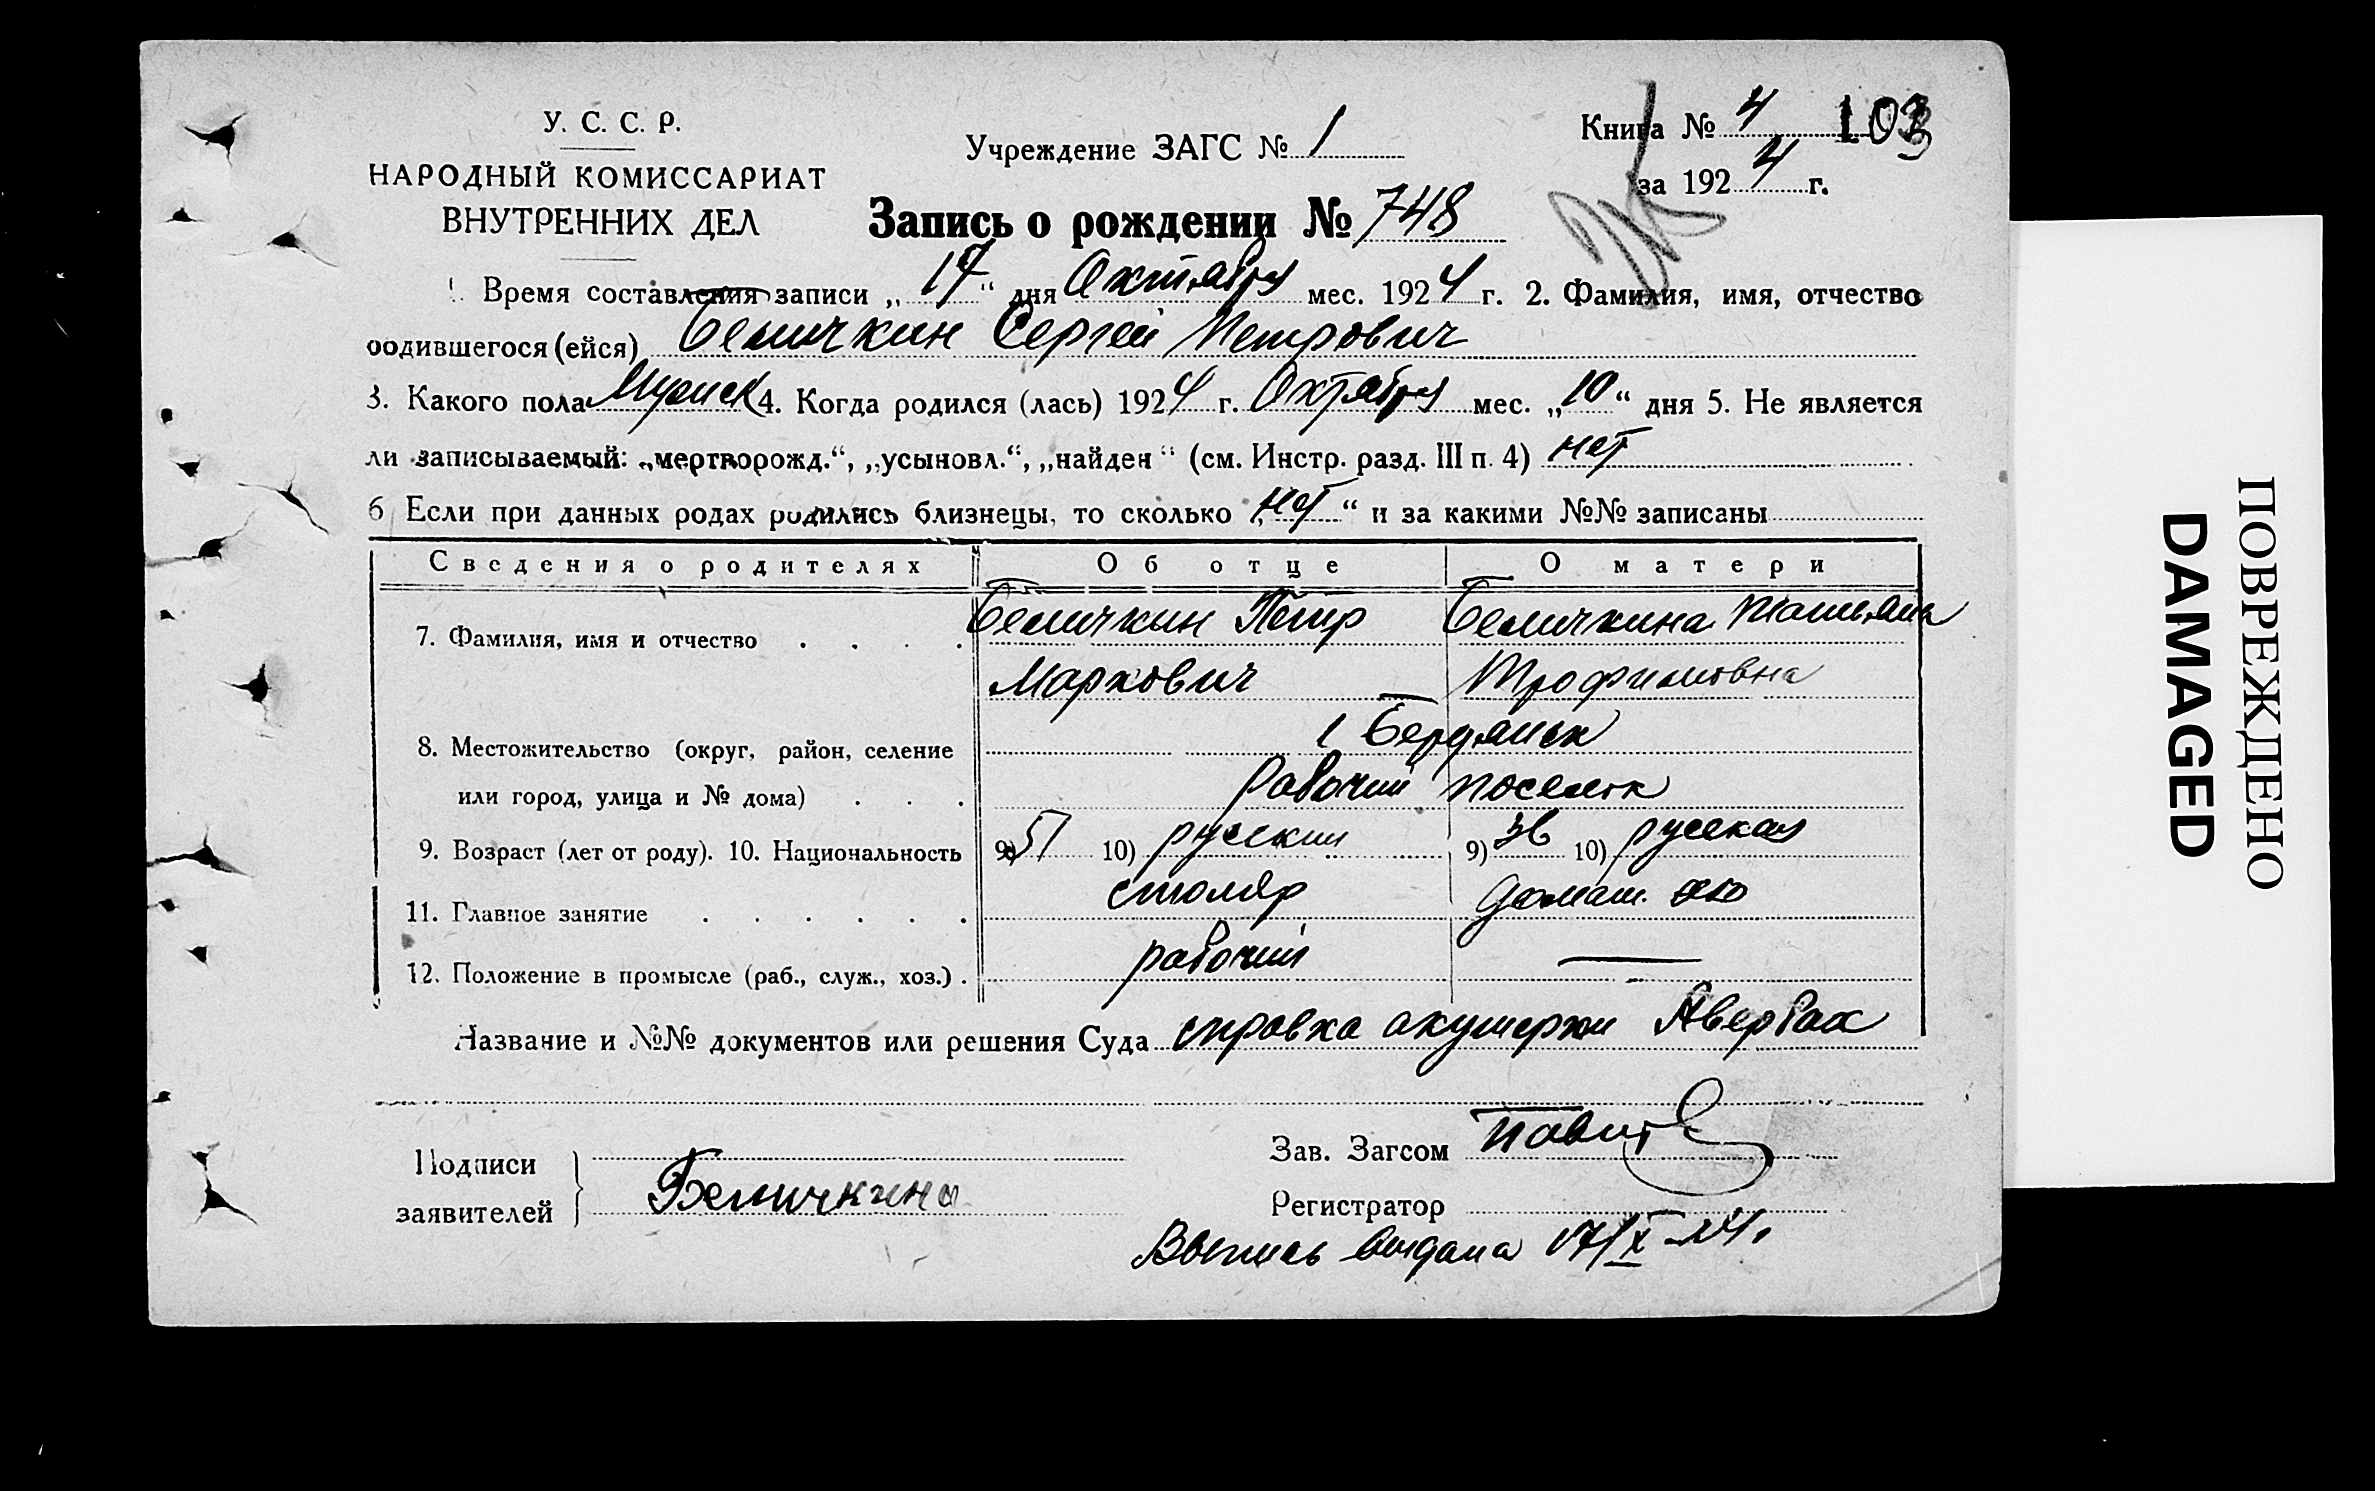 У. С. С. Р.
НАРОДНЫЙ КОМИССАРИАТ
ВНУТРЕННИХ ДЕЛ
Учреждение ЗАГС № 1
Книга № 4
103
за 1924 г.
Запись о рождении № 748
1. Время составления записи „17“ дня Октября мес. 1924 г. 2. Фамилия, имя, отчество
родившегося (ейся) Беличкин Сергей Петрович
3. Какого пола Мужск 4. Когда родился (лась) 1924 г. Октября мес. „10“ дня 5. Не является
ли записываемый: „мертворожд.“, „усыновл.“, „найден“ (см. Инстр. разд. III п. 4) нет
6 Если при данных родах родились близнецы, то сколько „нет“ и за какими №№ записаны
Сведения о родителях Об отце О матери
7. Фамилия, имя и отчество Беличкин Петр Беличкина Татьяна
Маркович Трофимовна
8. Местожительство (округ, район, селение г Бердянск
или город, улица и № дома) Рабочий поселок
9. Возраст (лет от роду). 10. Национальность 9) 51 10) русский 9) 36 10) русская
11. Главное занятие столяр домаш. хоз
12. Положение в промысле (раб., служ., хоз.) рабочий —
Название и №№ документов или решения Суда справка акушерки Авербах
Подписи
заявителей
Беличкина
Зав. Загсом
Регистратор
Выпись выдана 17/X-24г.
ПОВРЕЖДЕНО
DAMAGED